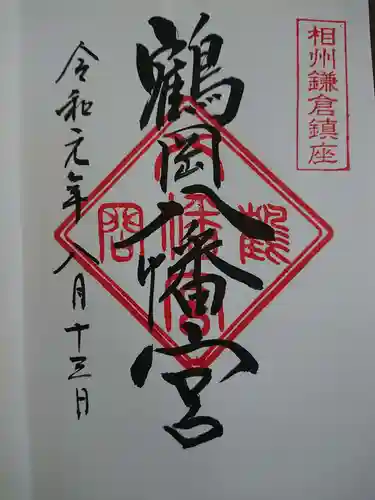 相州鎌倉鎮座
鶴岡八幡宮
令和元年八月十三日